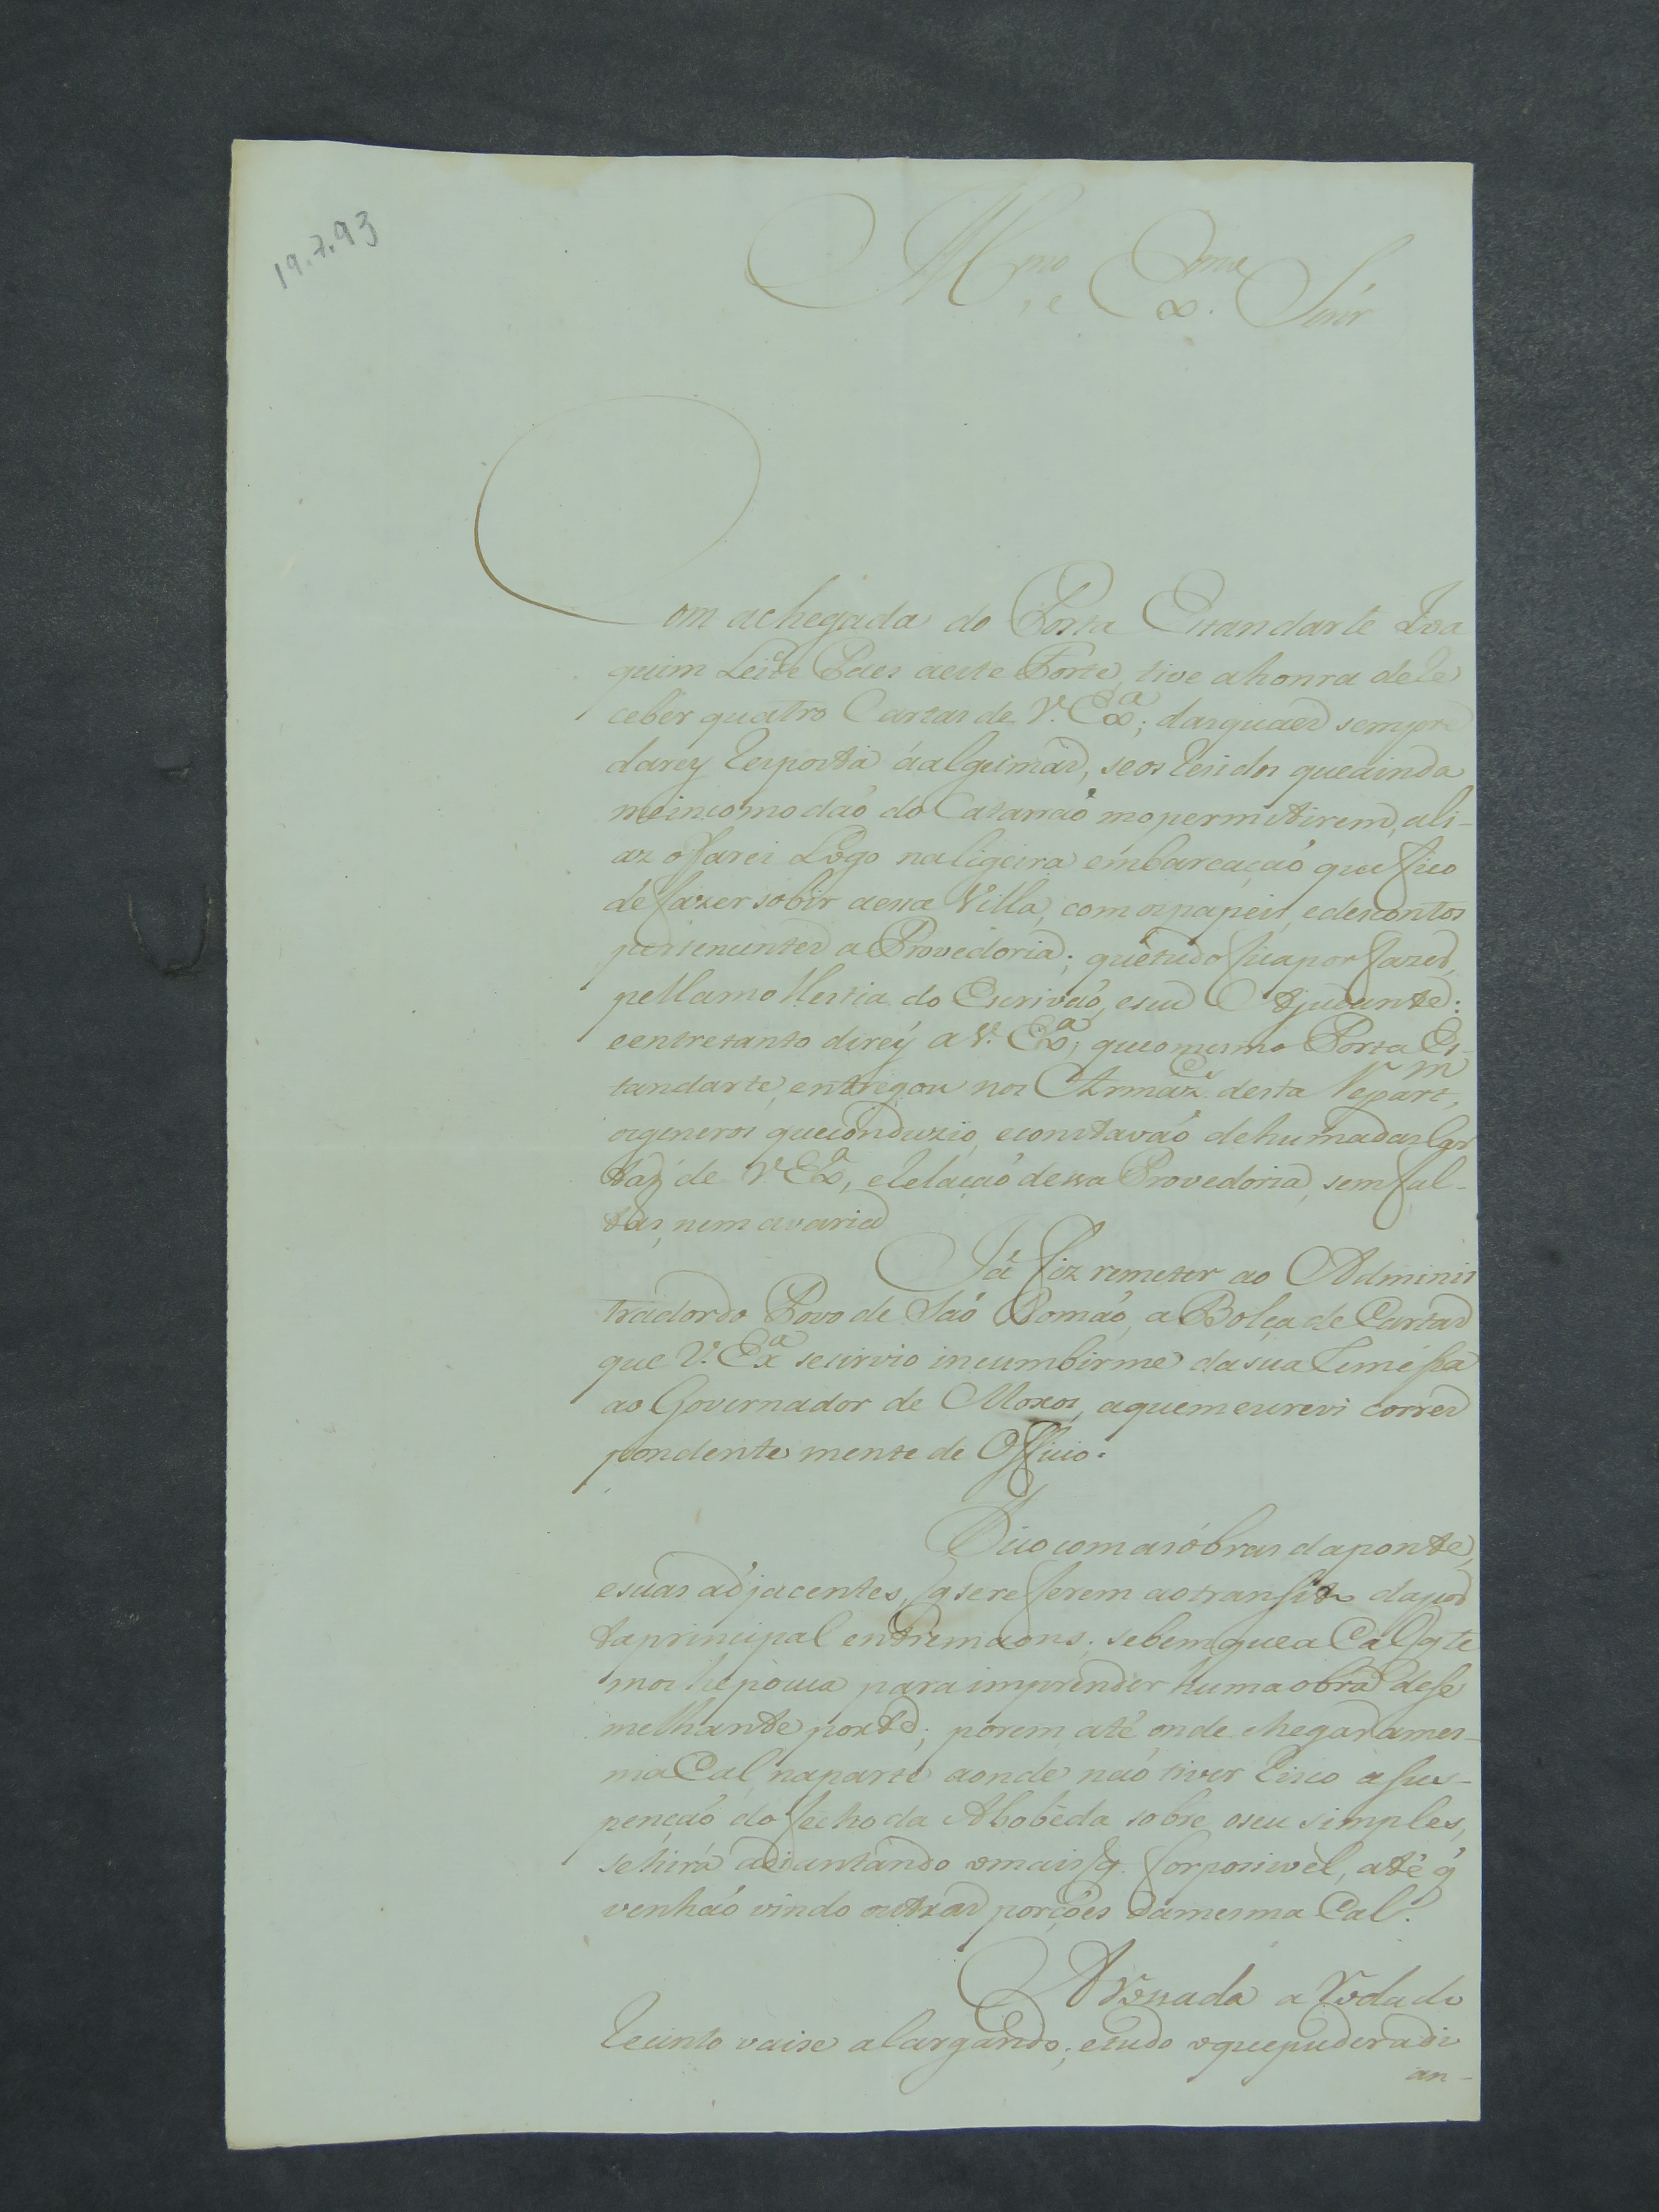 19.7.93
Illmo e Exmo Senr
Com achegada do Porta Estandarte Joa
quim Leite Pães aeste Forte, tive ahonra de Re
ceber quatro Cartas de V. Exa; dasquaes sempre
darey Resposta áalgumas, seos Residos queainda
meincomodaõ do Catarraõ mopermitirem, ali-
az ofarei Logo naligeira embarcaçaõ que fico
de fazer sobir aessa Villa, com ospapeis, edescontos
pertencentes a Provedoria; quetudo ficapor fazer,
pella molestia do Escrivaõ, eseu Ajudante:
eentretanto direy a V. Exa, queomesmo Porta Es-
tandarte, entregou nos Armaz.es desta Repart.m,
osgeneros queconduzio, econstavaõ dehumadas Car
tas de V. Exa, eRelaçaõ dessa Provedoria, semfal-
tas, nem avaria
Já fiz remeter ao Adminis
tradordo Povo de Saõ Romaõ, a Bolça de Cartas
que V. Exa seservio incumbirme dasua Reméssa
ao Governador de Moxos, aquemescrevi corres
pondente mente de Officio.
Fico comasóbras daponte,
esuas adjacentes, q sereferem aotransito dapor
taprincipal entremaons; sebemquea Cal q te
mos hepouca para imprender huma obra dese
melhante porte; porem, até onde chegar ames-
ma Cal, naparte aonde naõ tiver Risco a sus-
pençaõ do fecho da Abobeda sobre oseu simples,
sehirá adiantando omais q. forpossivel, até q̃
venhaõ vindo outras porções damesma Cal.
A Rossada a Roda do
Recinto vaise alargando; etudo oquepuder adi
an-